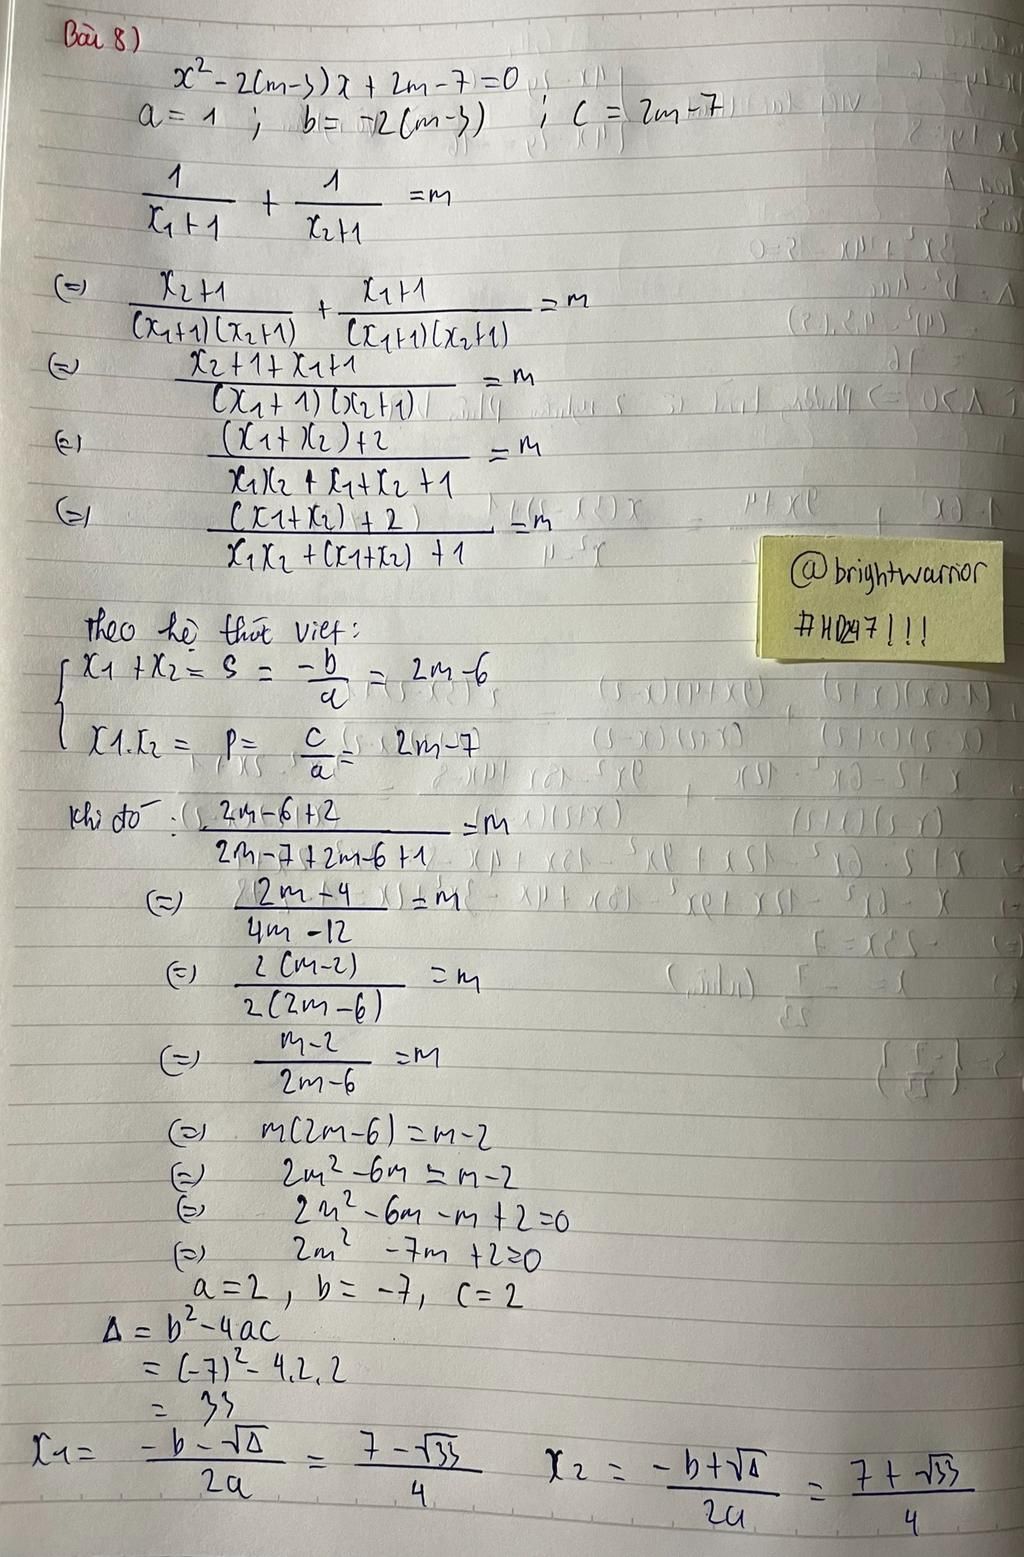 Bài 8)
x² - 2(m-3)x + 2m - 7 = 0
a = 1 ; b = -2(m-3) ; c = 2m-7
1/(x₁+1) + 1/(x₂+1) = m
(=) (x₂+1)/((x₁+1)(x₂+1)) + (x₁+1)/((x₁+1)(x₂+1)) = m
(=) (x₂+1+x₁+1)/((x₁+1)(x₂+1)) = m
(=) ((x₁+x₂)+2)/(x₁x₂ + x₁+x₂ +1) = m
(=) ((x1+x₂)+2)/(x₁x₂ + (x1+x₂) +1) = m
@brightwarrior
#HD247!!!
Theo hệ thức viet:
x1 + x₂ = S = -b/a = 2m-6
x1.x₂ = P = c/a = 2m-7
Khi đó : (2m-6+2)/(2m-7+2m-6+1) = m
(=) (2m-4)/(4m-12) = m
(=) 2(m-2)/(2(2m-6)) = m
(=) (m-2)/(2m-6) = m
(=) m(2m-6) = m-2
(=) 2m² - 6m = m-2
(=) 2m² - 6m - m + 2 = 0
(=) 2m² - 7m + 2 = 0
a = 2, b = -7, c = 2
Δ = b² - 4ac
= (-7)² - 4.2.2
= 33
x₁ = (-b-√Δ)/2a = (7-√33)/4 x₂ = (-b+√Δ)/2a = (7+√33)/4